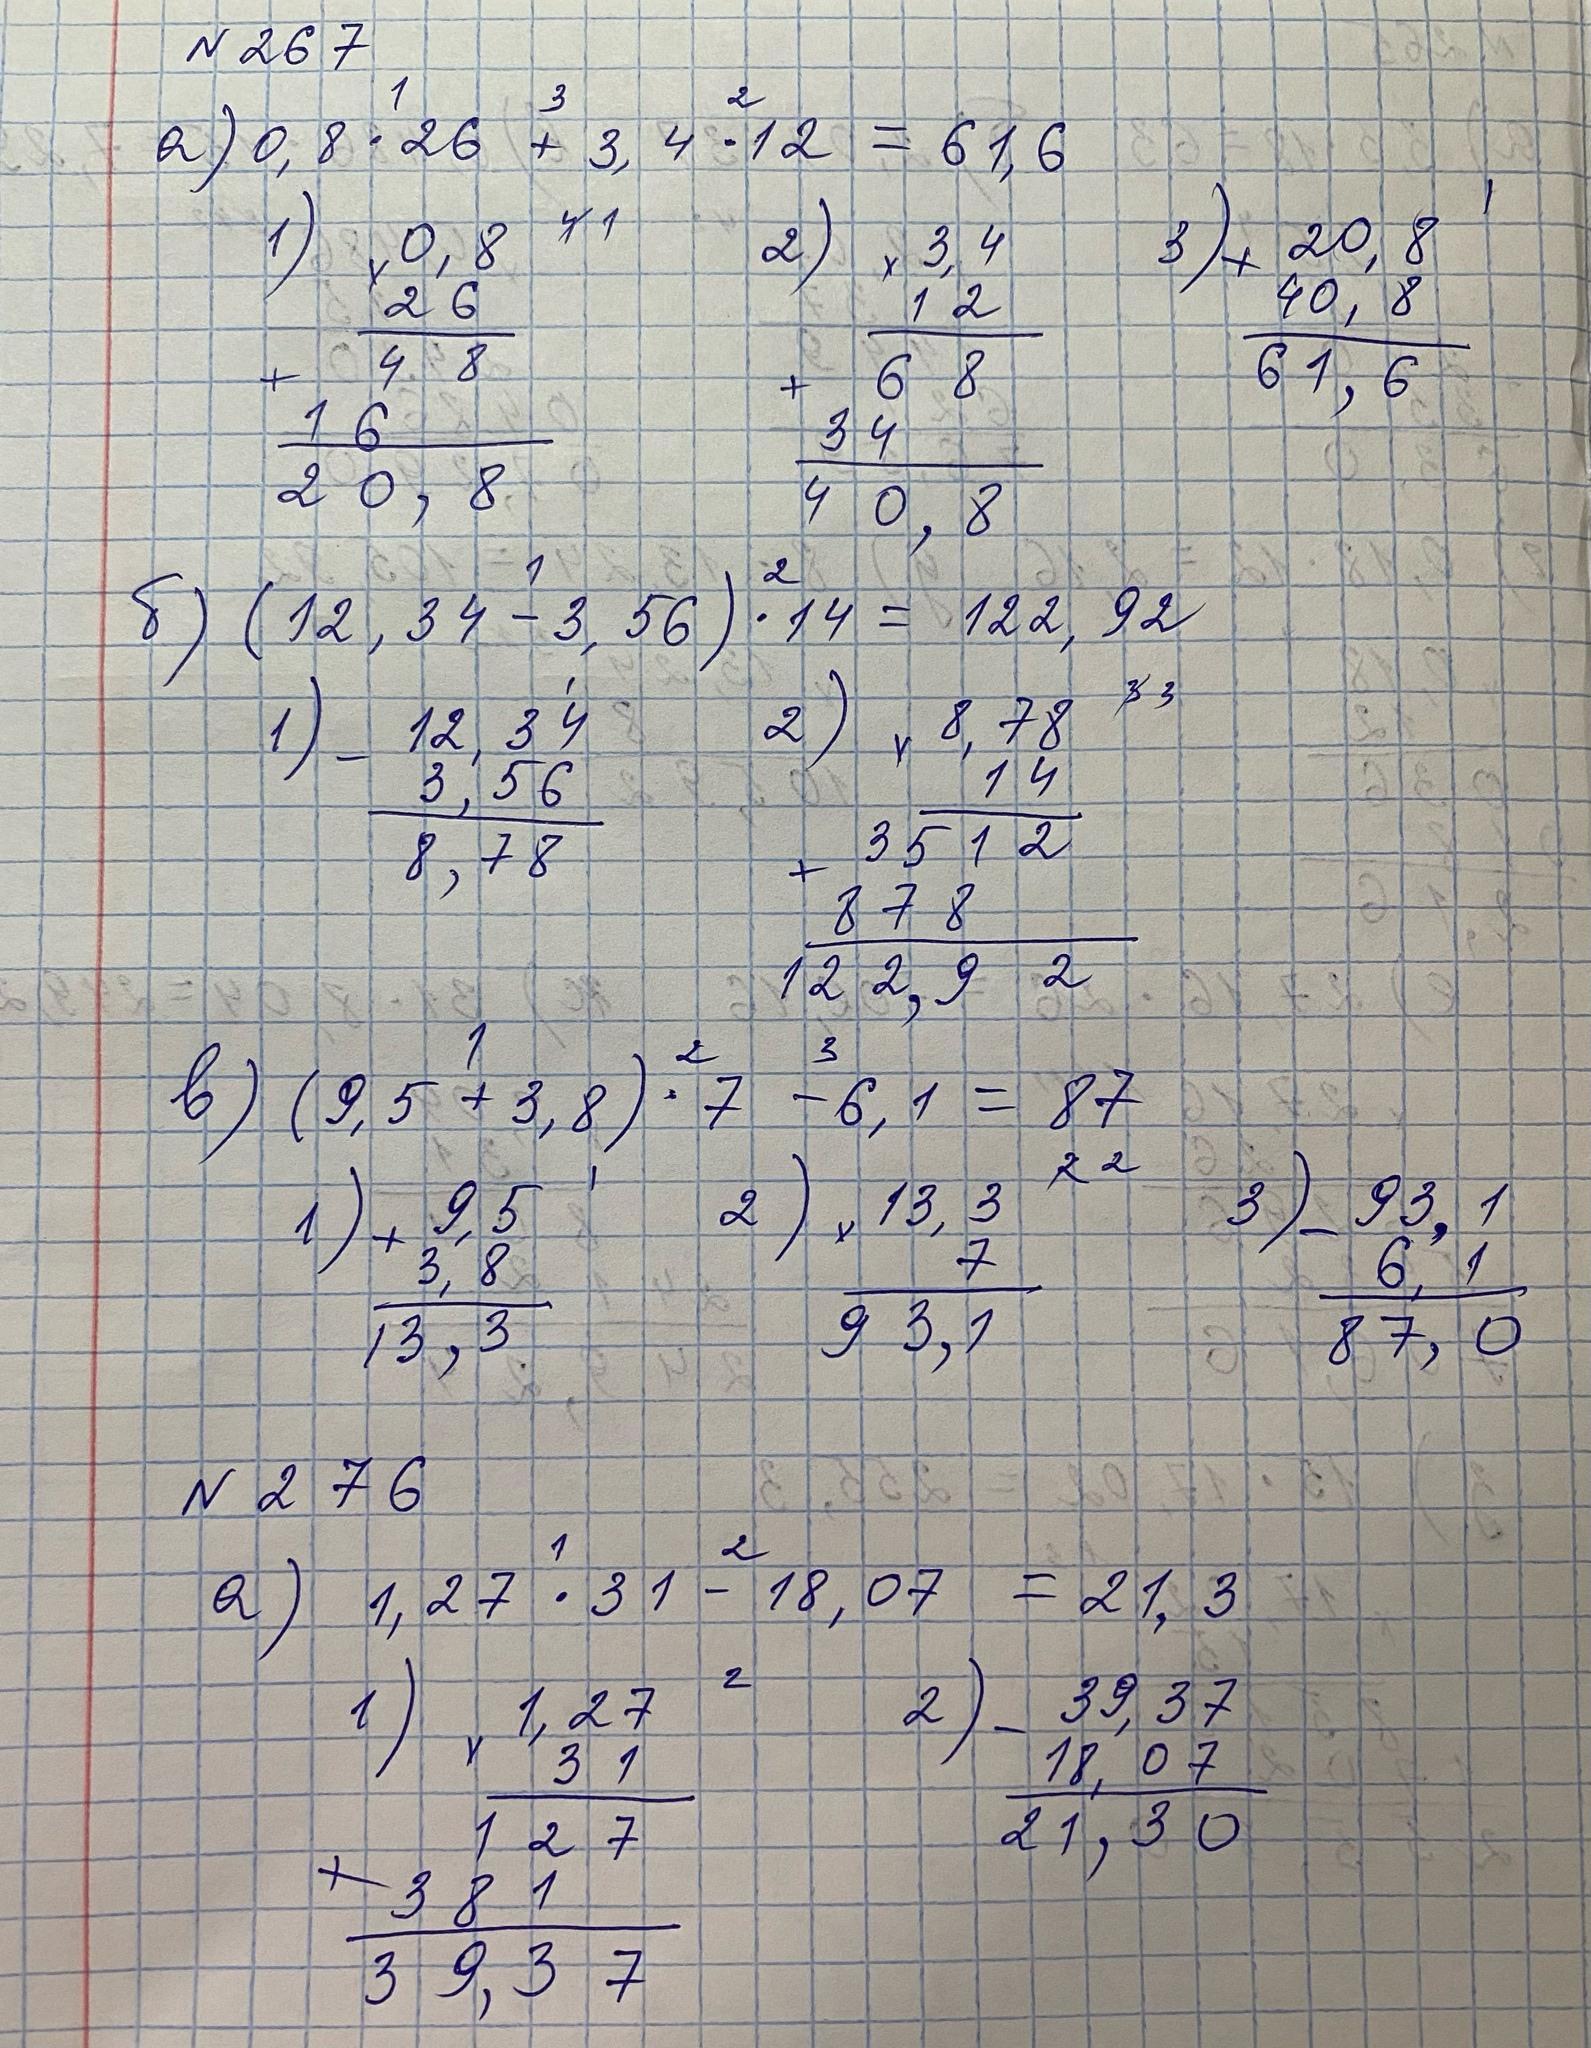 N 267
1 3 2
а) 0,8 · 26 + 3,4 · 12 = 61,6
1) × 0,8 41 2) × 3,4 3) + 20,8 1
26 12 40,8
+ 48 + 68 61,6
16 34
20,8 40,8
1 2
б) (12,34 - 3,56) · 14 = 122,92
1) - 12,34 2) × 8,78 33
3,56 14
8,78 + 3512
878
122,92
1 2 3
в) (9,5 + 3,8) · 7 - 6,1 = 87
1) + 9,5 1 2) × 13,3 22 3) - 93,1
3,8 7 6,1
13,3 93,1 87,0
N 276
1 2
а) 1,27 · 31 - 18,07 = 21,3
1) × 1,27 2 2) - 39,37
31 18,07
127 21,30
+ 381
39,37